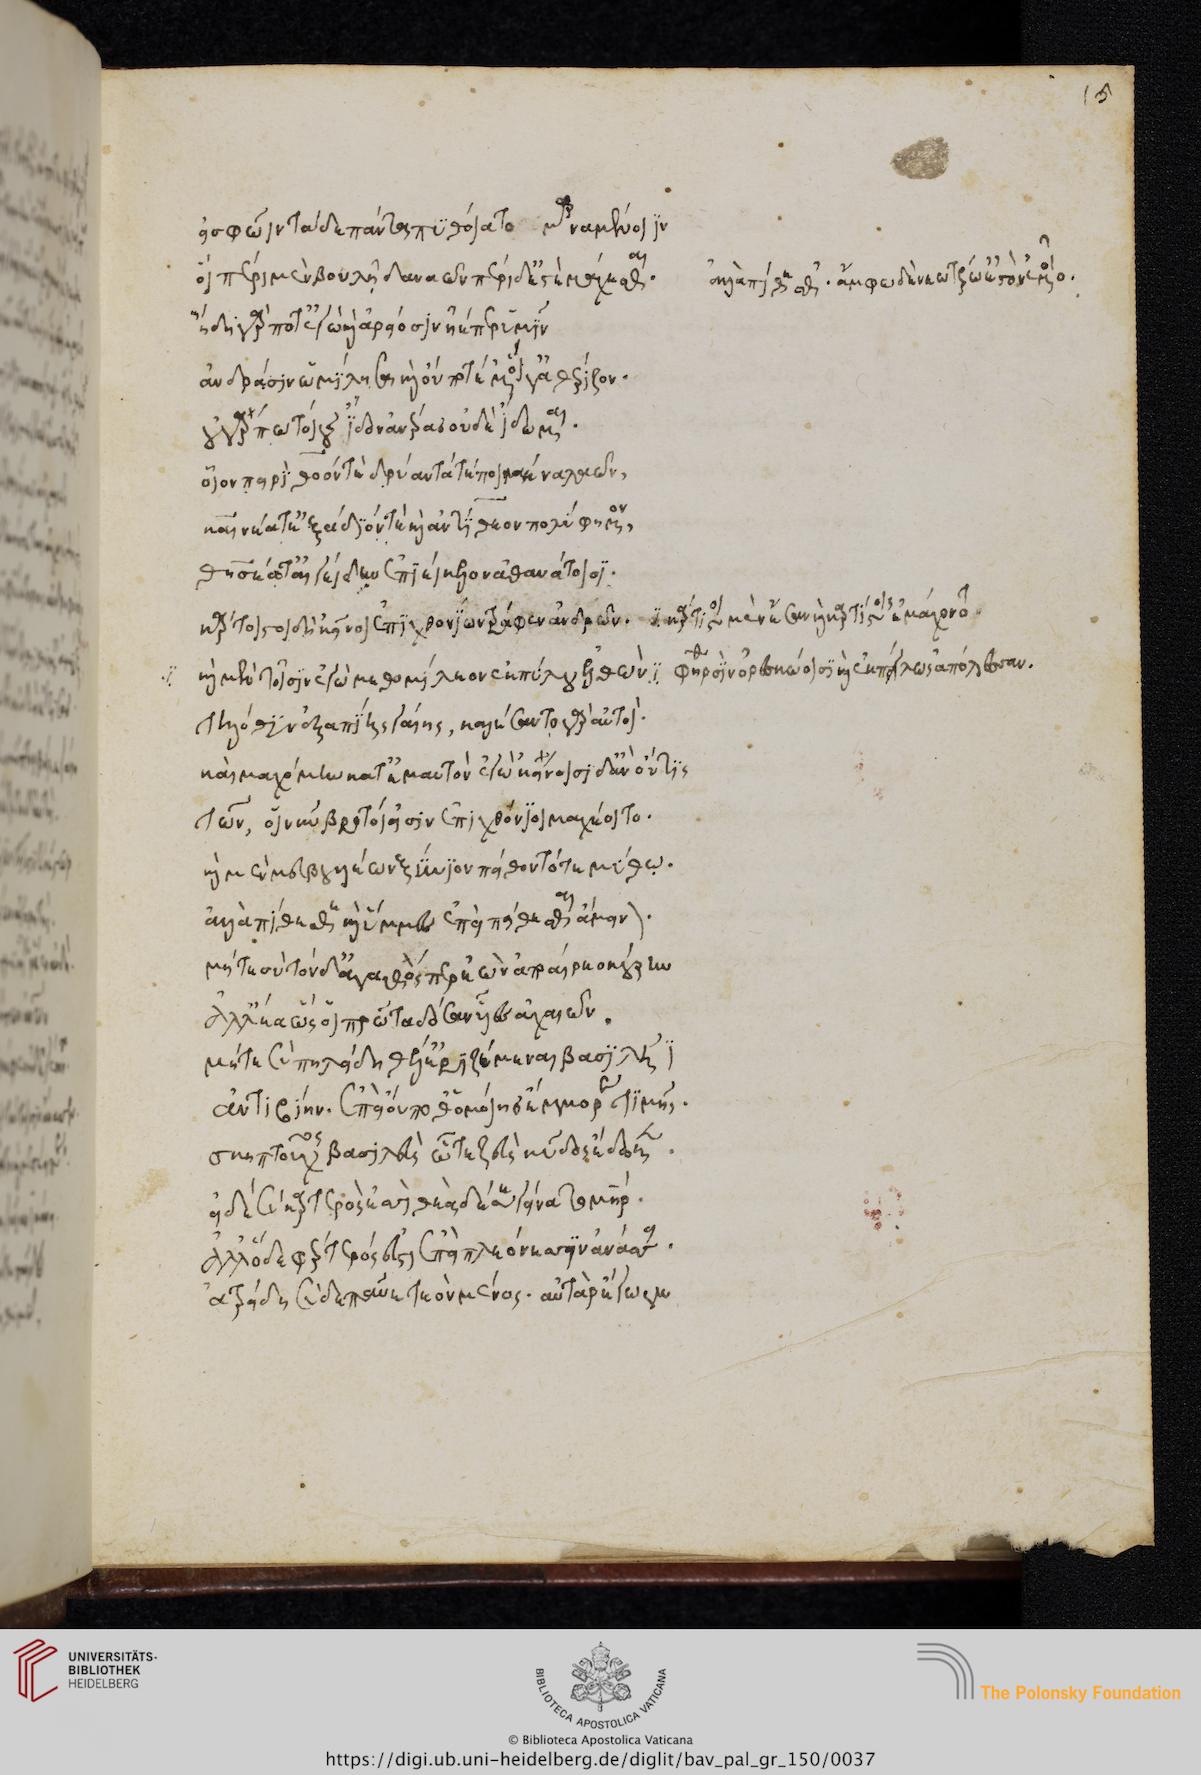 εἰ σφῶϊν τάδε πάντα πυθοίατο μαρναμένοιϊν
οἳ περὶ μὲν βουλῇ δαναῶν περὶ δ' ἐστὲ μάχεσθαι.
ἀλλὰ πίθεσθε. ἄμφω δὲ νεωτέρω ἐστὸν ἐμεῖο.
ἤδη γάρ ποτ' ἐγὼ καὶ ἀρείοσιν ἠέπερ ὑμῖν
ἀνδράσιν ὡμίλησα καὶ οὔποτέ μ' οἵ γ' ἀθέριζον.
οὐ γάρ πω τοίους ἴδον ἀνέρας οὐδὲ ἴδωμαι.
οἷον πειρίθοόν τε δρύαντά τε ποιμένα λαῶν,
καινέα τ' ἐξάδϊόν τε καὶ ἀντίθεον πολύφημον,
θησέα τ' αἰγείδην ἐπιείκελον ἀθανάτοισι.
κάρτιστοι δὴ κεῖνοι ἐπιχθονίων τράφεν ἀνδρῶν. κάρτιστοι μὲν ἔσαν καὶ καρτίστοις ἐμάχοντο
καὶ μὲν τοῖσιν ἐγὼ μεθομίλεον ἐκ πύλου ἐλθὼν φηρσὶν ὀρεσκῴοισι καὶ ἐκπάγλως ἀπόλεσσαν.
τηλόθεν ἐξ ἀπίης γαίης, καλέσαντο γὰρ αὐτοί.
καὶ μαχόμην κατ' ἔμ' αὐτὸν ἐγὼ κείνοισι δ' ἂν οὔτις
τῶν, οἳ νῦν βροτοί εἰσιν ἐπιχθόνιοι μαχέοιτο.
καὶ μέν μευ βουλέων ξύνιον πείθοντό τε μύθῳ.
ἀλλὰ πίθεσθε καὶ ὔμμες ἐπεὶ πείθεσθαι ἄμεινον.
μήτε σὺ τόνδ' ἀγαθός περ ἐὼν ἀποαίρεο κούρην
ἀλλ' ἔα ὥς οἱ πρῶτα δόσαν υἷες ἀχαιῶν.
μήτε σὺ πηλείδη θέλ' ἐριζέμεναι βασιλῆϊ
ἀντιβίην. ἐπεὶ οὔποθ' ὁμοίης ἔμμορε τιμῆς.
σκηπτοῦχος βασιλεὺς ᾧτε ζεὺς κῦδος ἔδωκεν.
εἰ δὲ σὺ καρτερός ἐσσι θεὰ δέ σε γείνατο μήτηρ.
ἀλλ' ὅδε φέρτερός ἐστιν ἐπεὶ πλεόνεσσιν ἀνάσσει.
ἀτρείδη σὺ δὲ παῦε τεὸν μένος. αὐτὰρ ἔγωγε
15
UNIVERSITÄTS-
BIBLIOTHEK
HEIDELBERG
BIBLIOTECA APOSTOLICA VATICANA
The Polonsky Foundation
© Biblioteca Apostolica Vaticana
https://digi.ub.uni-heidelberg.de/diglit/bav_pal_gr_150/0037